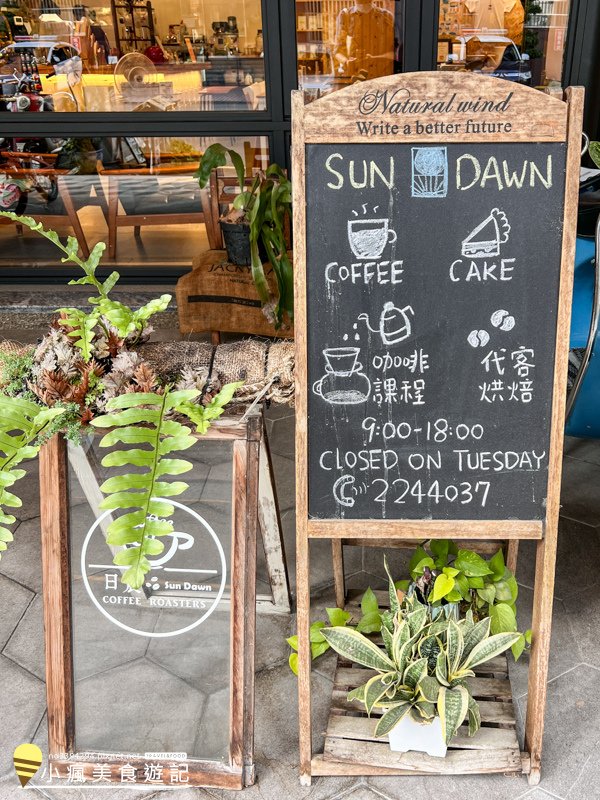 Natural wind
Write a better future
SUN DAWN
COFFEE
CAKE
咖啡
課程
代客
烘焙
9:00-18:00
CLOSED ON TUESDAY
2244037
日
Sun Dawn
COFFEE ROASTERS
TRAVEL&FOOD
小瘋美食遊記